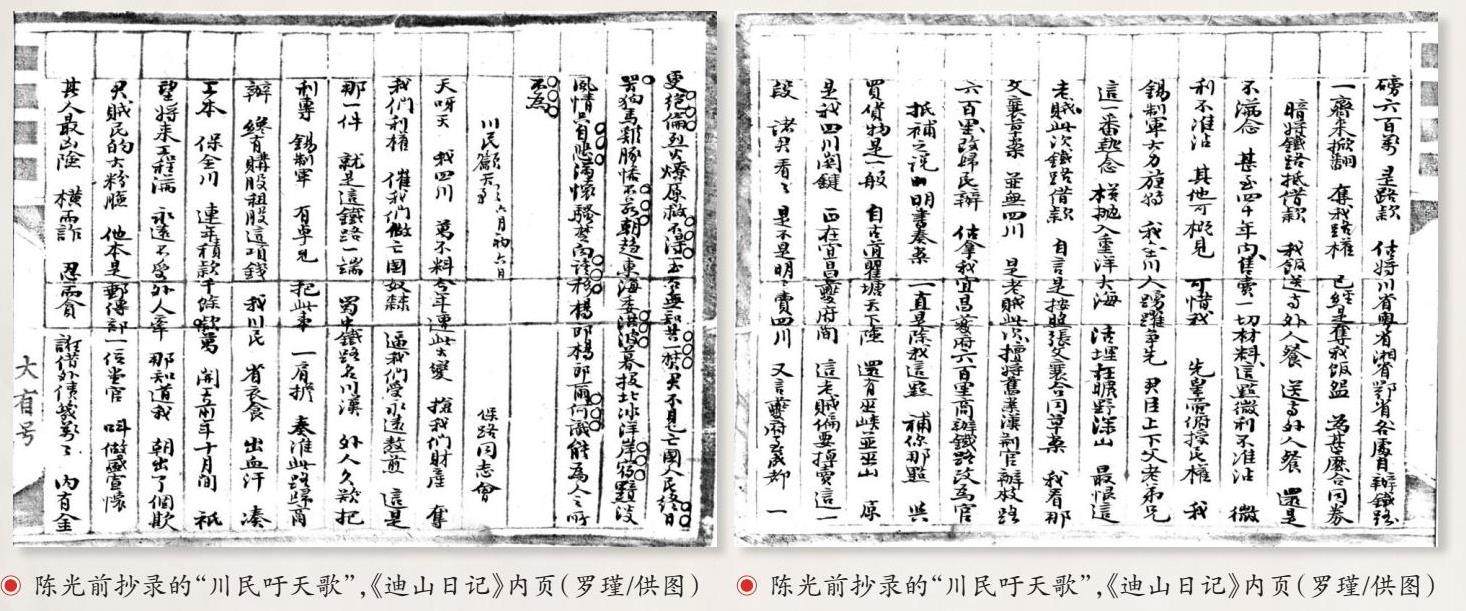 更絕倫烈火燎原救不得玉石
君不見亡國人民終日
罟狗馬雞豚
朝越東海
暮投北冰洋岸
風情
為人之所
不為
川民籲天歌 六月初六日
保路同志會
天呀天 我四川 萬不料今年遭此大變 搶我們財產 奪
我們利權 催我們做亡國奴隸 逼我們受永遠熬煎 這是
那一件 就是這鐵路一端 蜀中鐵路名川漢 外人久欲把
利專 錫制軍 有卓見 把此事 一肩擔 奏准此路歸商
辦 總有購股租股這項錢 我川民 省衣食 出血汗 湊
工本 保全川 連年積款千餘萬 開工前年十月間 祇
望將來工程滿 永遠不受外人牽 那知道我 朝出了個欺
君賊民的大粉臉 他本是郵傳部一位堂官 叫做盛宣懷
其人最凶險 橫而詐 忍而貪 誆借外債幾萬萬 內有金
大有号
磅六百萬 是路款 估將川省粵省湘省鄂省各屬自辦鐵路
一齊來掀翻 奪我路權 已經是奪我飯盌 為甚麼合同券
暗將鐵路抵借款 我飯送與外人餐 送與外人餐 還是
不滿念 甚至四十年內售賣一切材料這點微利不准沾 微
利不准沾 其他可概見 可惜我 先皇帝俯授民權 我
錫制軍大力旋轉 我全川人踴躍爭先 君臣上下父老弟兄
這一番熱念 拋入重洋大海 活埋在曠野深山 最恨這
老賊此次鐵路借款 自言是按照張文襄合同草案 我看那
文襄草案 並無四川 是老賊此次擅將舊業漢荊官辦枝路
六百里改歸民辦 估拿我宜昌夔府六百里商辦鐵路改為官
抵補之說由明書奏案 一直是除我這點 補你那點 與
買貨物是一般 自古道瞿塘天下險 還有巫峽並巫山 原
是我四川關鍵 正在宜昌夔府間 這老賊偏要掉賣這一
段 諸君看看 是不是明明賣四川 又言夔府至成都 一
陈光前抄录的“川民吁天歌”,《迪山日记》内页(罗瑾/供图)
陈光前抄录的“川民吁天歌”,《迪山日记》内页(罗瑾/供图)